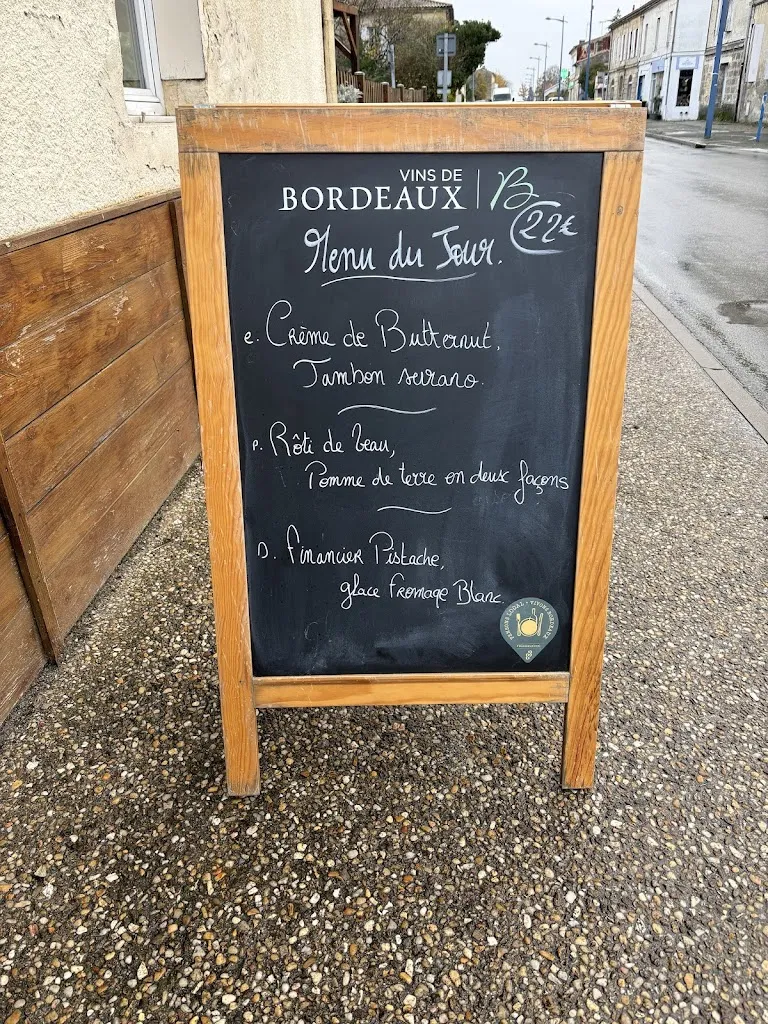 VINS DE
BORDEAUX | B
22€
Menu du Jour.
e. Crème de Butternut,
Jambon serrano.
P. Rôti de Veau,
Pomme de terre en deux façons
D. Financier Pistache,
glace Fromage Blanc.